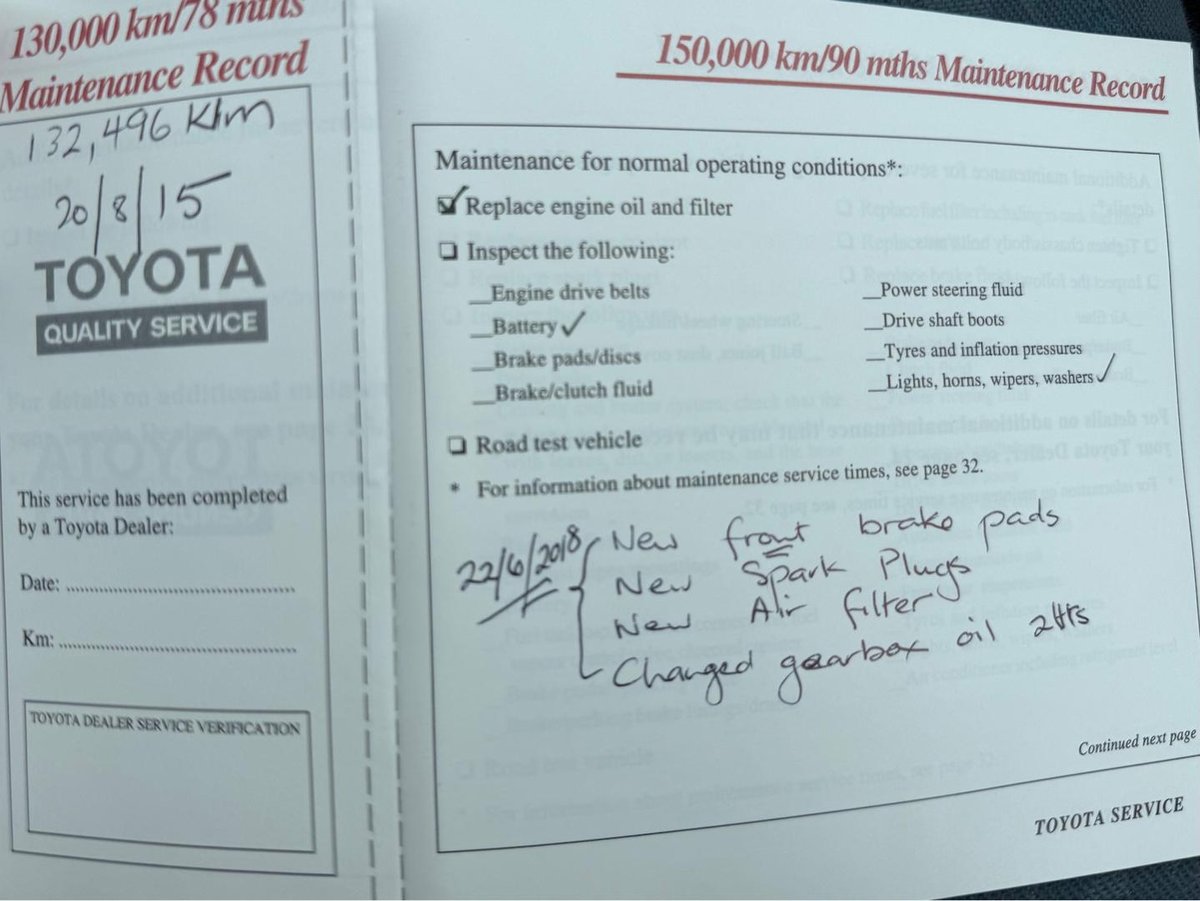 130,000 km/78 mths
Maintenance Record
132,496 Klm
20/8/15
TOYOTA
QUALITY SERVICE
This service has been completed
by a Toyota Dealer:
Date: ..........
Km: ..........
TOYOTA DEALER SERVICE VERIFICATION
150,000 km/90 mths Maintenance Record
Maintenance for normal operating conditions*:
☑ Replace engine oil and filter
❑ Inspect the following:
__Engine drive belts
__Battery ✓
__Brake pads/discs
__Brake/clutch fluid
__Power steering fluid
__Drive shaft boots
__Tyres and inflation pressures
__Lights, horns, wipers, washers ✓
❑ Road test vehicle
* For information about maintenance service times, see page 32.
22/6/2018
New front brake pads
New Spark Plugs
New Air filter
Changed gearbox oil 2ltrs
Continued next page
TOYOTA SERVICE